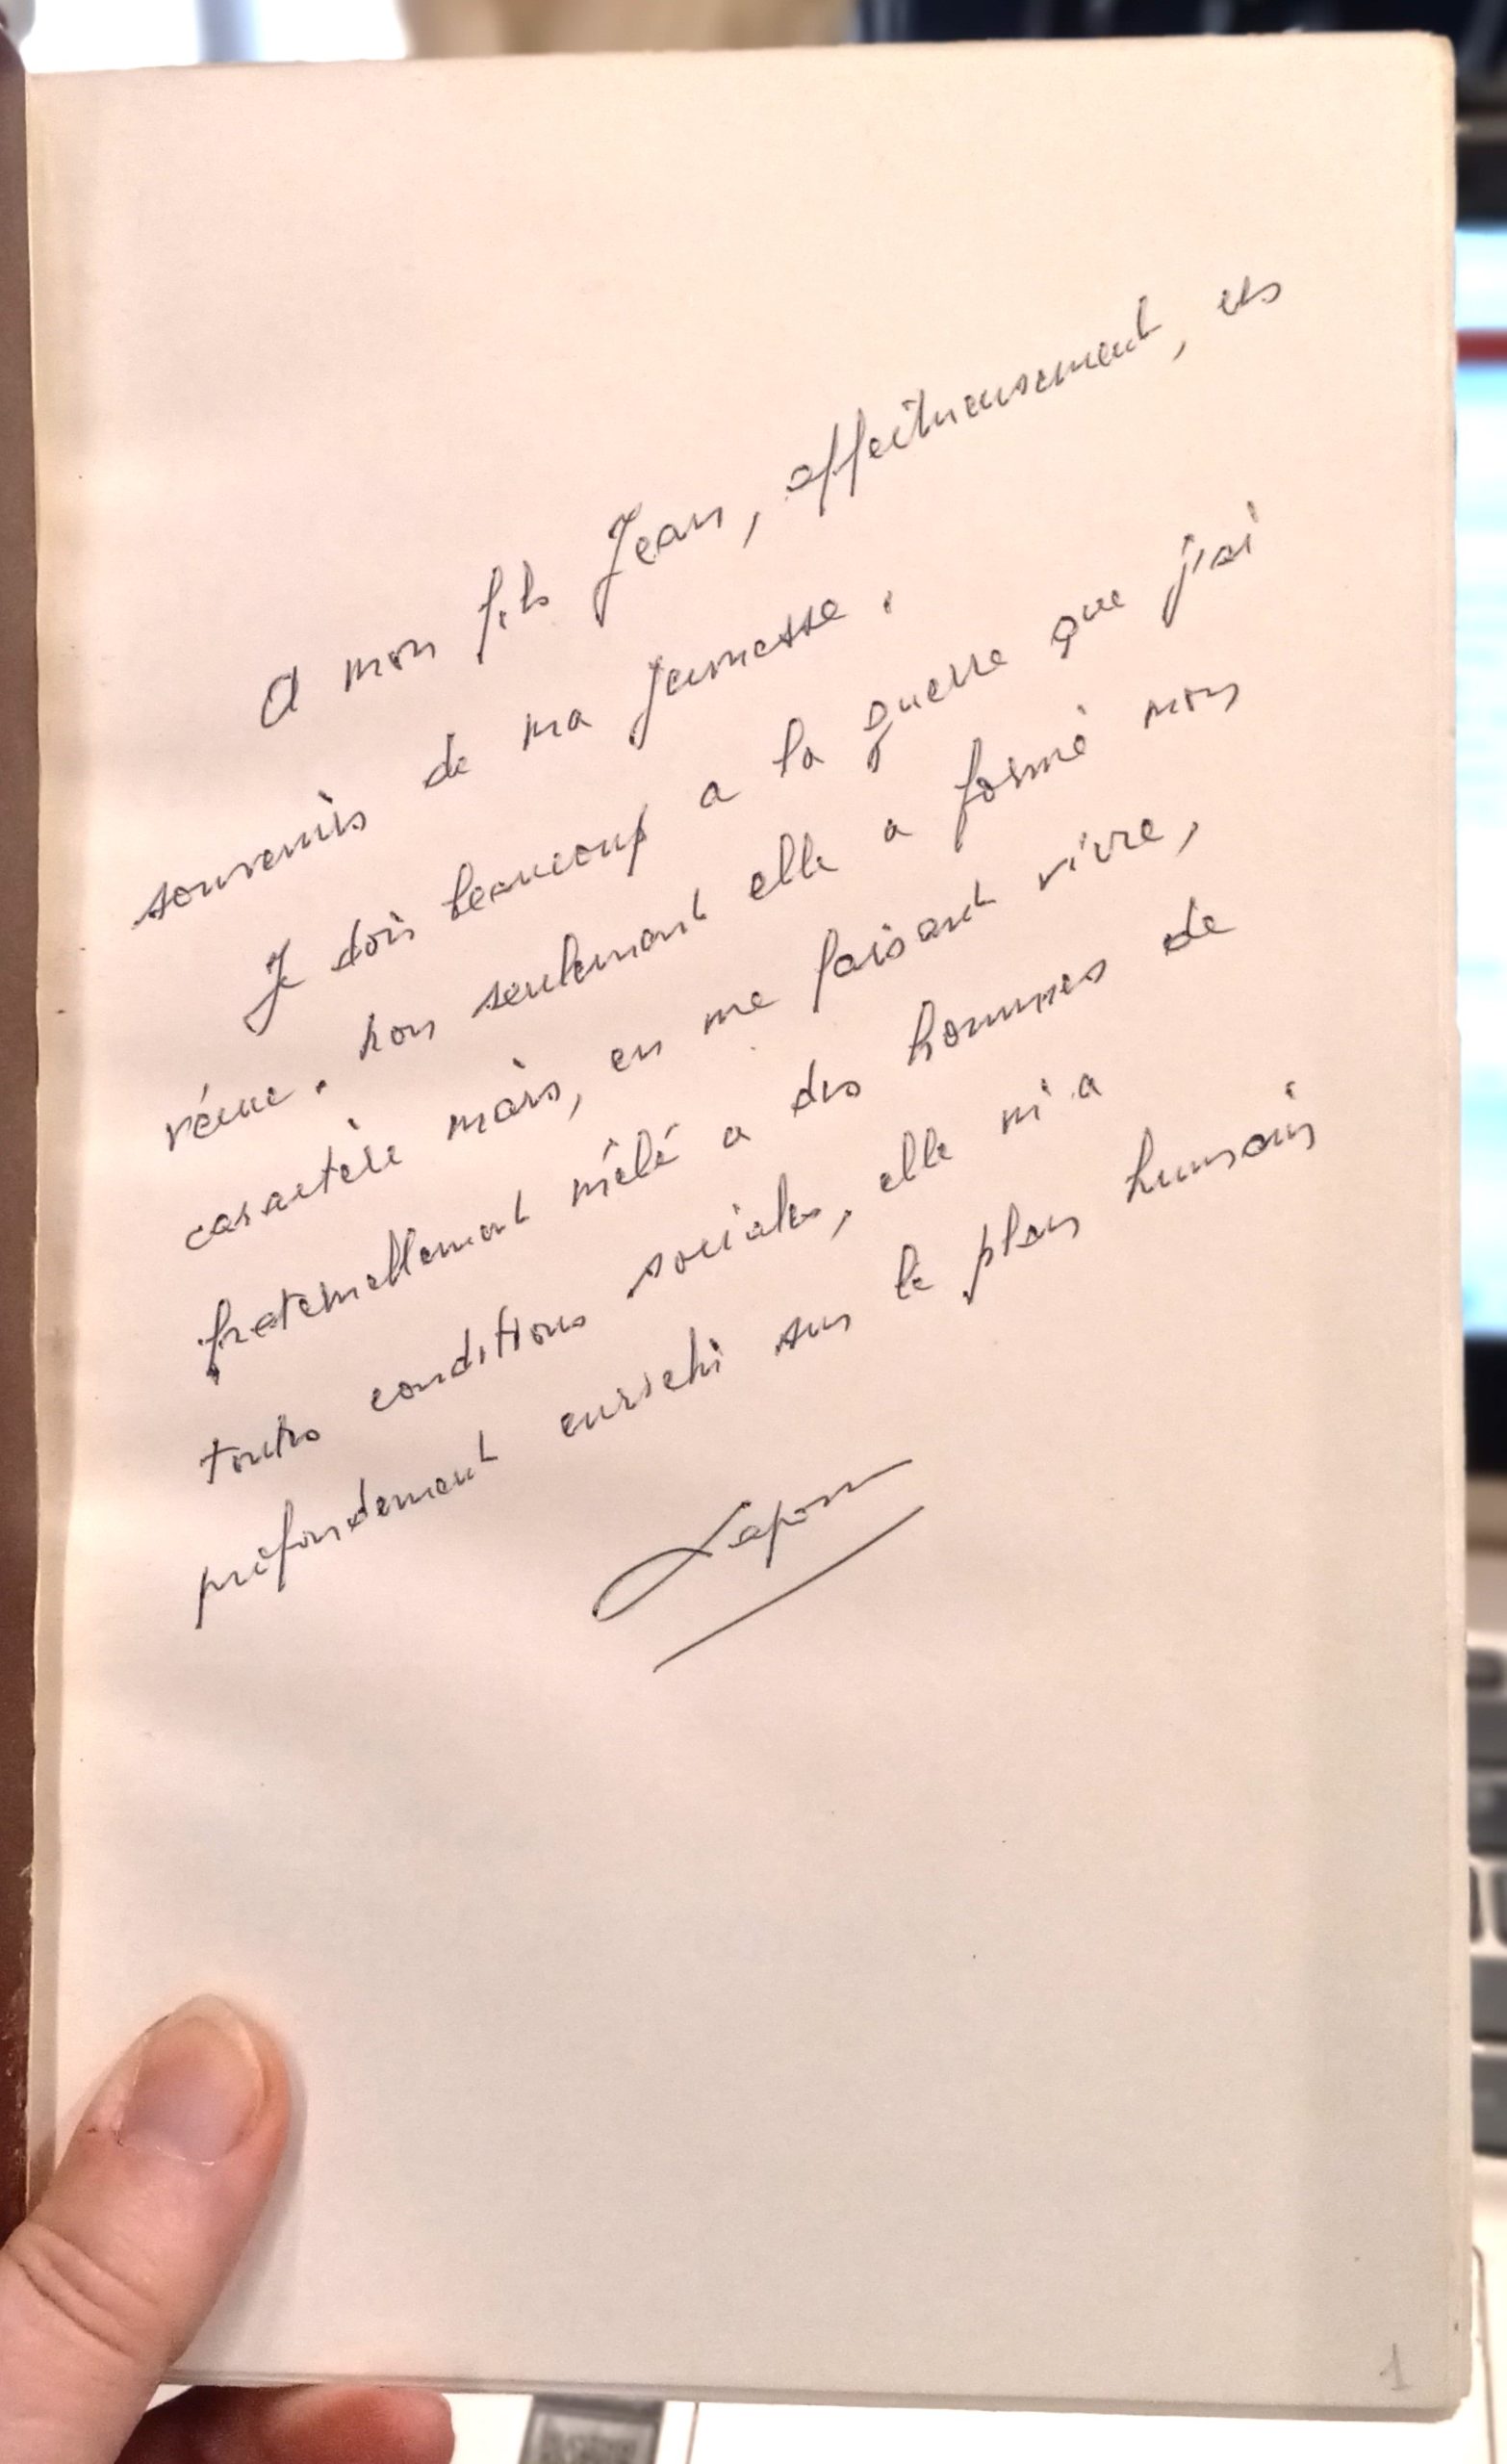 A mon fils Jean, affectueusement, ces
souvenirs de ma jeunesse.
Je dois beaucoup a la guerre que j'ai
vécue. Non seulement elle a formé mon
caractère mais, en me faisant vivre,
fraternellement mêlé a des hommes de
toutes conditions sociales, elle m'a
profondement enrichi sur le plan humain
1